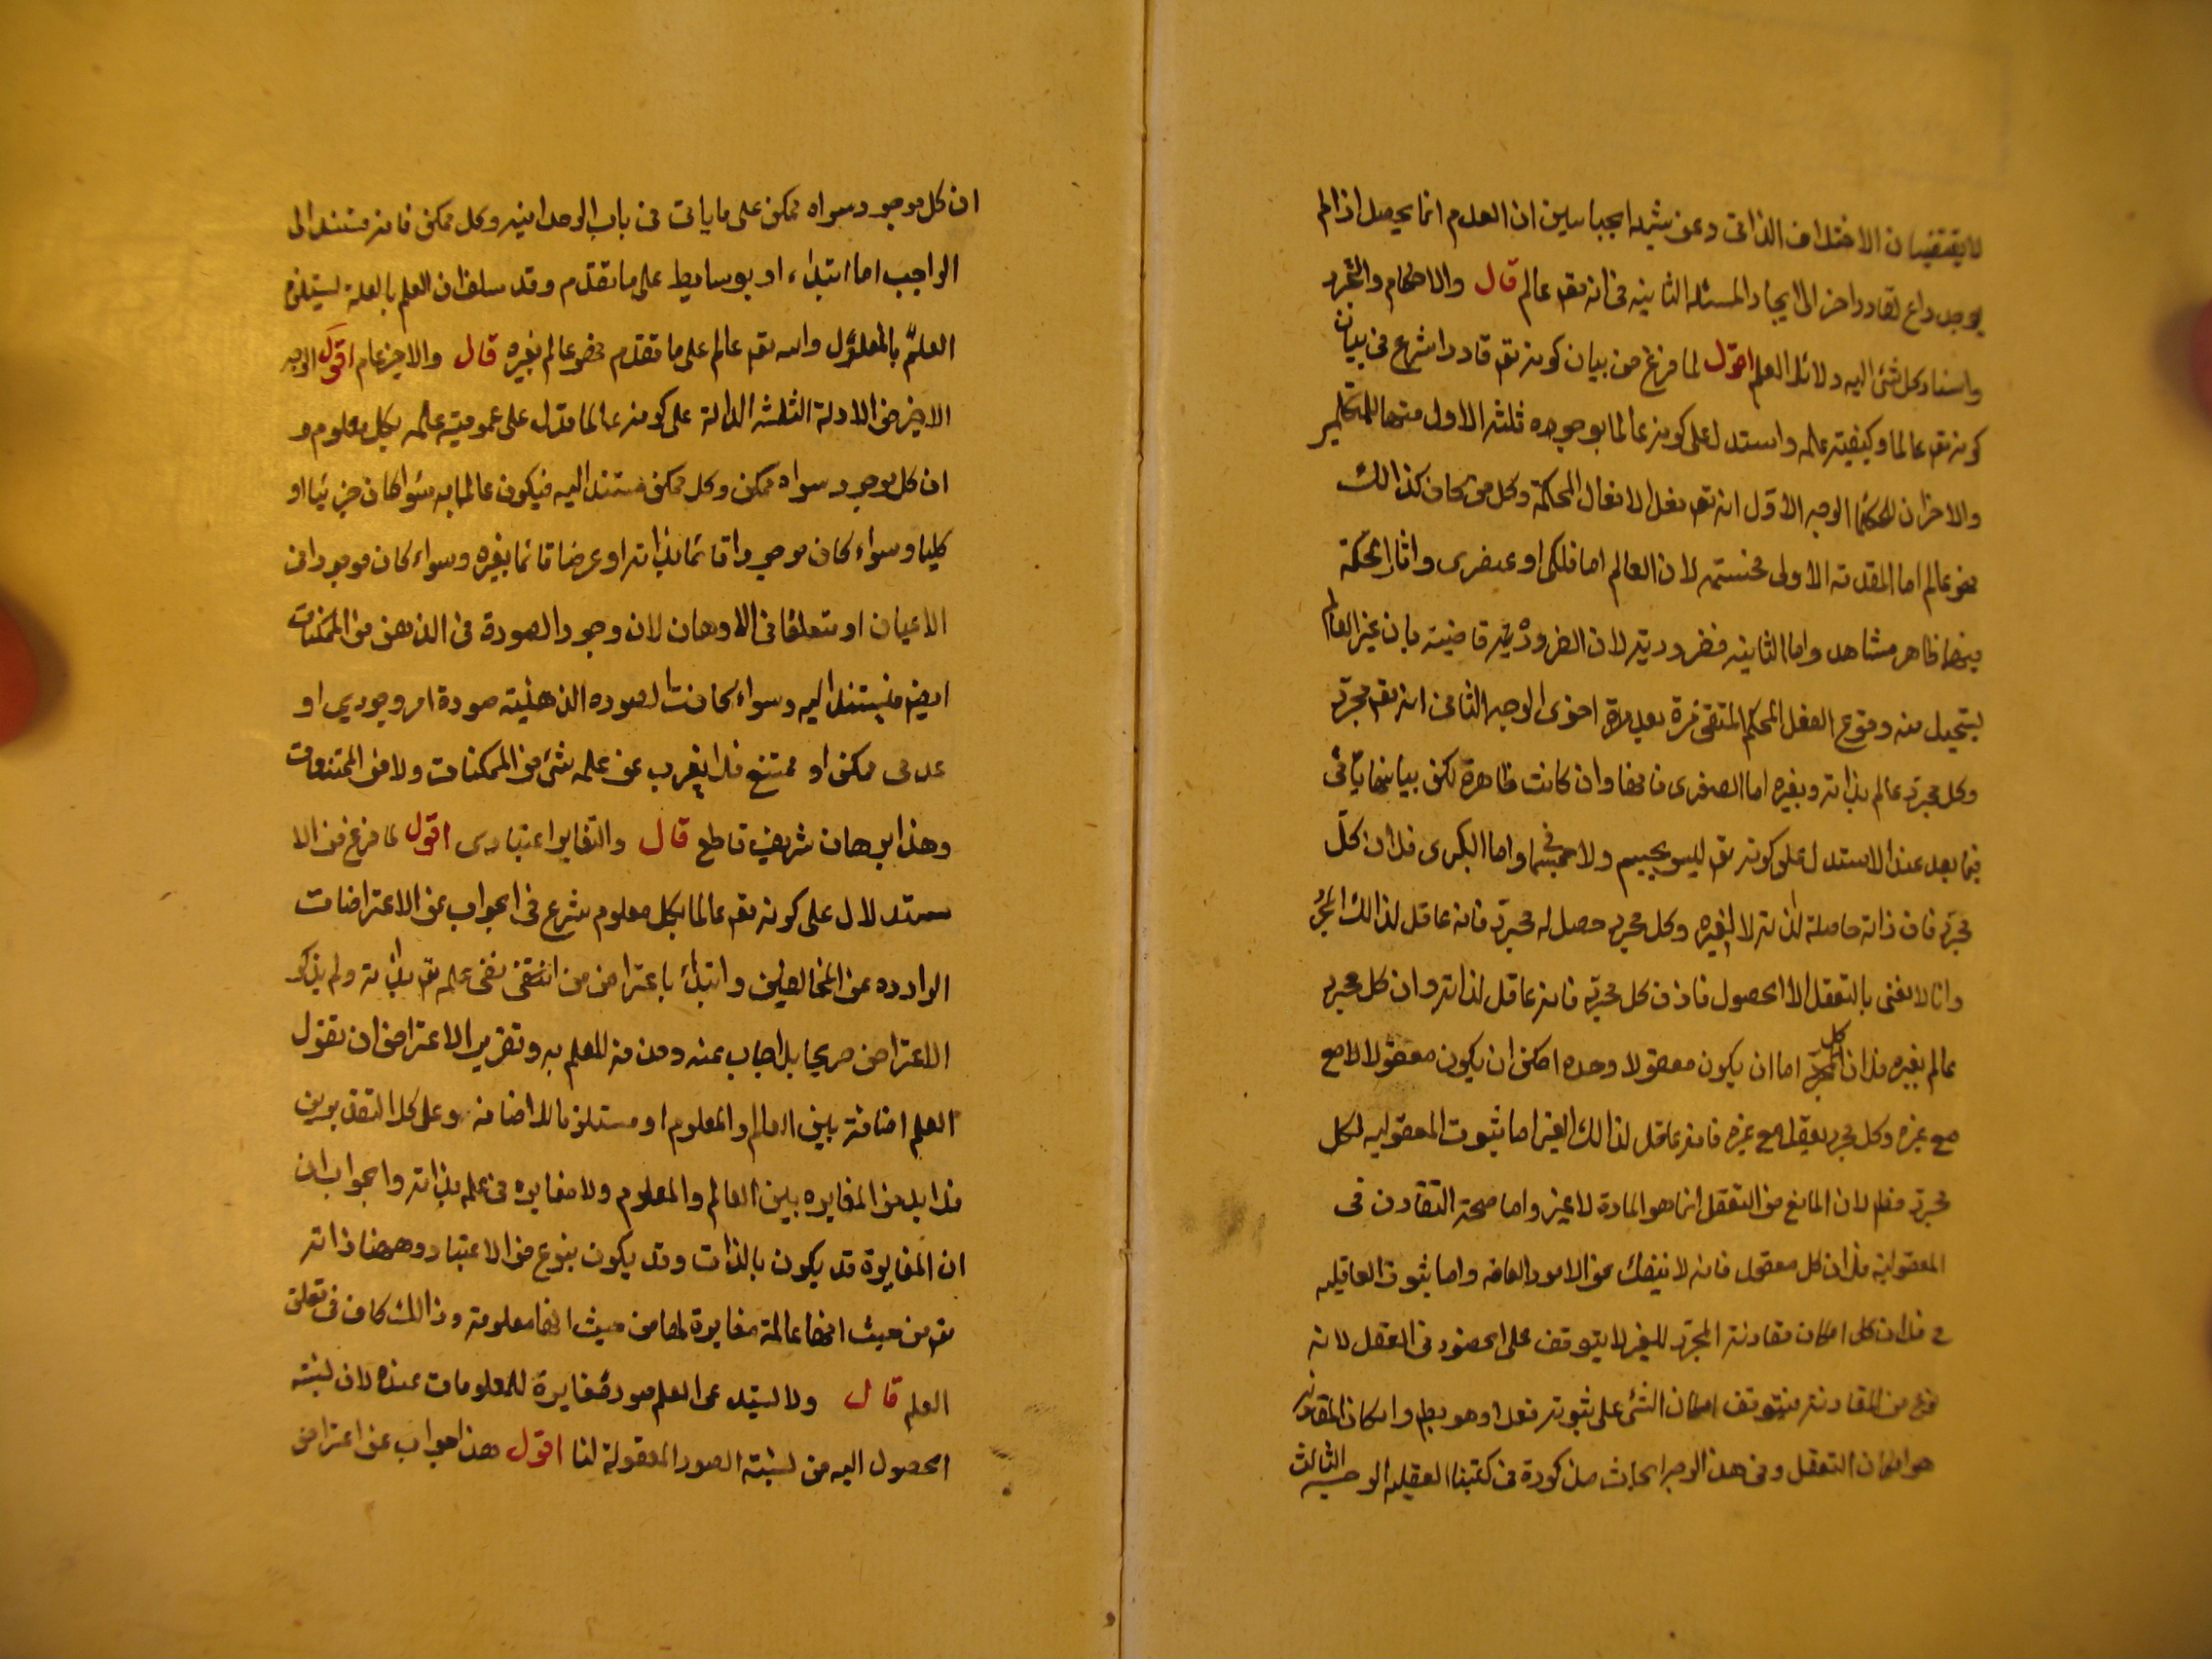 لا يقتضيان الاختلاف الذاتى وعن شبهه الجبايين ان العدم انما يحصل اذا لم
يوجد داع لقادر اخر الى ايجاد المسئلة الثانيه فى انه تع عالم قال والاحكام والتجرد
واستناد كل شئ اليه دلائل العلم اقول لما فرغ من بيان كونه تع قادرا شرع فى بيان
كونه تع عالما وكيفيته علمه واستدل على كونه عالما بوجوه ثلثه الاول منها للمتكلمين
والاخران للحكما الوجه الاول انه تع فعل الافعال المحكمة وكل من كان كذالك
فهو عالم اما المقدمة الاولى فحسيه لان العالم اما فلكى او عنصرى واثار الحكمة
فيها ظاهر مشاهد واما الثانيه فضروريته لان الضروريه قاضيته بان غير العالم
يستحيل منه وقوع الفعل المحكم المتقن مرة بعد مرة اخرى الوجه الثانى انه تع مجرد
وكل مجرد عالم بذاته وبغيره اما الصغرى فانها وان كانت ظاهرة لكن بيانها ياتى
فيما بعد عند الاستدلال على كونه تع ليس بجسم ولا جسمانى واما الكبرى فلان كل
مجرد فان ذاته حاصلة لذاته لا لغيره وكل مجرد حصل له مجرد فانه عاقل لذالك المجرد
وانا لا نعنى بالتعقل الا الحصول فاذن كل مجرد فانه عاقل لذاته وان كل مجرد
عالم بغيره فلان كل مجرد اما ان يكون معقولا وحده امكن ان يكون معقولا لا مع
مع غيره وكل مجرد يعقل مع غيره فانه عاقل لذالك الغير اما ثبوت المعقوليه لكل
مجرد فظ لان المانع من التعقل انما هو المادة لا غير واما صحة التقارن فى
المعقوليه فلان كل معقول فانه لا ينفك عن الامور العامه واما ثبوت العاقليه
ح فلان كل امكان مقارنة المجرد للغير لا يتوقف على الحضور فى العقل لانه
نوع من المقارنة فيتوقف امكان الشئ على ثبوته فعلا وهو بط وامكان المقارنه
هو امكان التعقل وفى هذا الوجه ابحاث مذكورة فى كتبنا العقليه الوجه الثالث
ان كل موجود سواه ممكن على ما ياتى فى باب الوحدانيه وكل ممكن فانه مستند الى
الواجب اما ابتداء او بوسايط على ما تقدم وقد سلف ان العلم بالعلة يستلزم
العلم بالمعلول والله تع عالم على ما تقدم فهو عالم بغيره قال والاخير عام اقول الوجه
الاخير من الادلة الثلثه الدالة على كونه عالما تدل على عموميته علمه بكل معلوم و
ان كل موجود سواه ممكن وكل ممكن مستند اليه فيكون عالما به سواء كان جزئيا او
كليا وسواء كان موجودا قائما بذاته او عرضا قائما بغيره وسواء كان موجودا فى
الاعيان او متعلقا فى الاوهان لان وجود الصورة فى الذهن من الممكنات
ايضا فيستند اليه وسواء كانت الصوره الذهنيته صورة امر وجودى او
عدمى ممكن او ممتنع فلا يعزب عن علمه شئ من الممكنات ولا من الممتنعات
وهذا برهان شريف قاطع قال والتغاير اعتبارى اقول لما فرغ من الا
ستدلال على كونه تع عالما بكل معلوم شرع فى الجواب عن الاعتراضات
الوارده عن المخالفين وابتداء باعتراض من انتقى نفى علمه تع بذاته ولم يذكر
الاعتراض صريحا بل اجاب عنه وحذفه للعلم به وتقرير الاعتراض ان نقول
العلم اضافة بين العالم والمعلوم او مستلزما للاضافه وعلى كلا التقديرين
فلا بد من المغايره بين العالم والمعلوم ولا مغايره فى علمه بذاته والجواب ان
ان المغايرة قد يكون بالذات وقد يكون بنوع من الاعتبار وههنا ذاته
تع من حيث انها عالمة مغايرة لها من حيث انها معلومة وذالك كاف فى تعلق
العلم قال ولا يستدعى العلم صورة مغايرة للمعلومات عنده لان نسبته
الحصول اليه من نسبته الصور المعقولة لنا اقول هذا جواب عن اعتراض